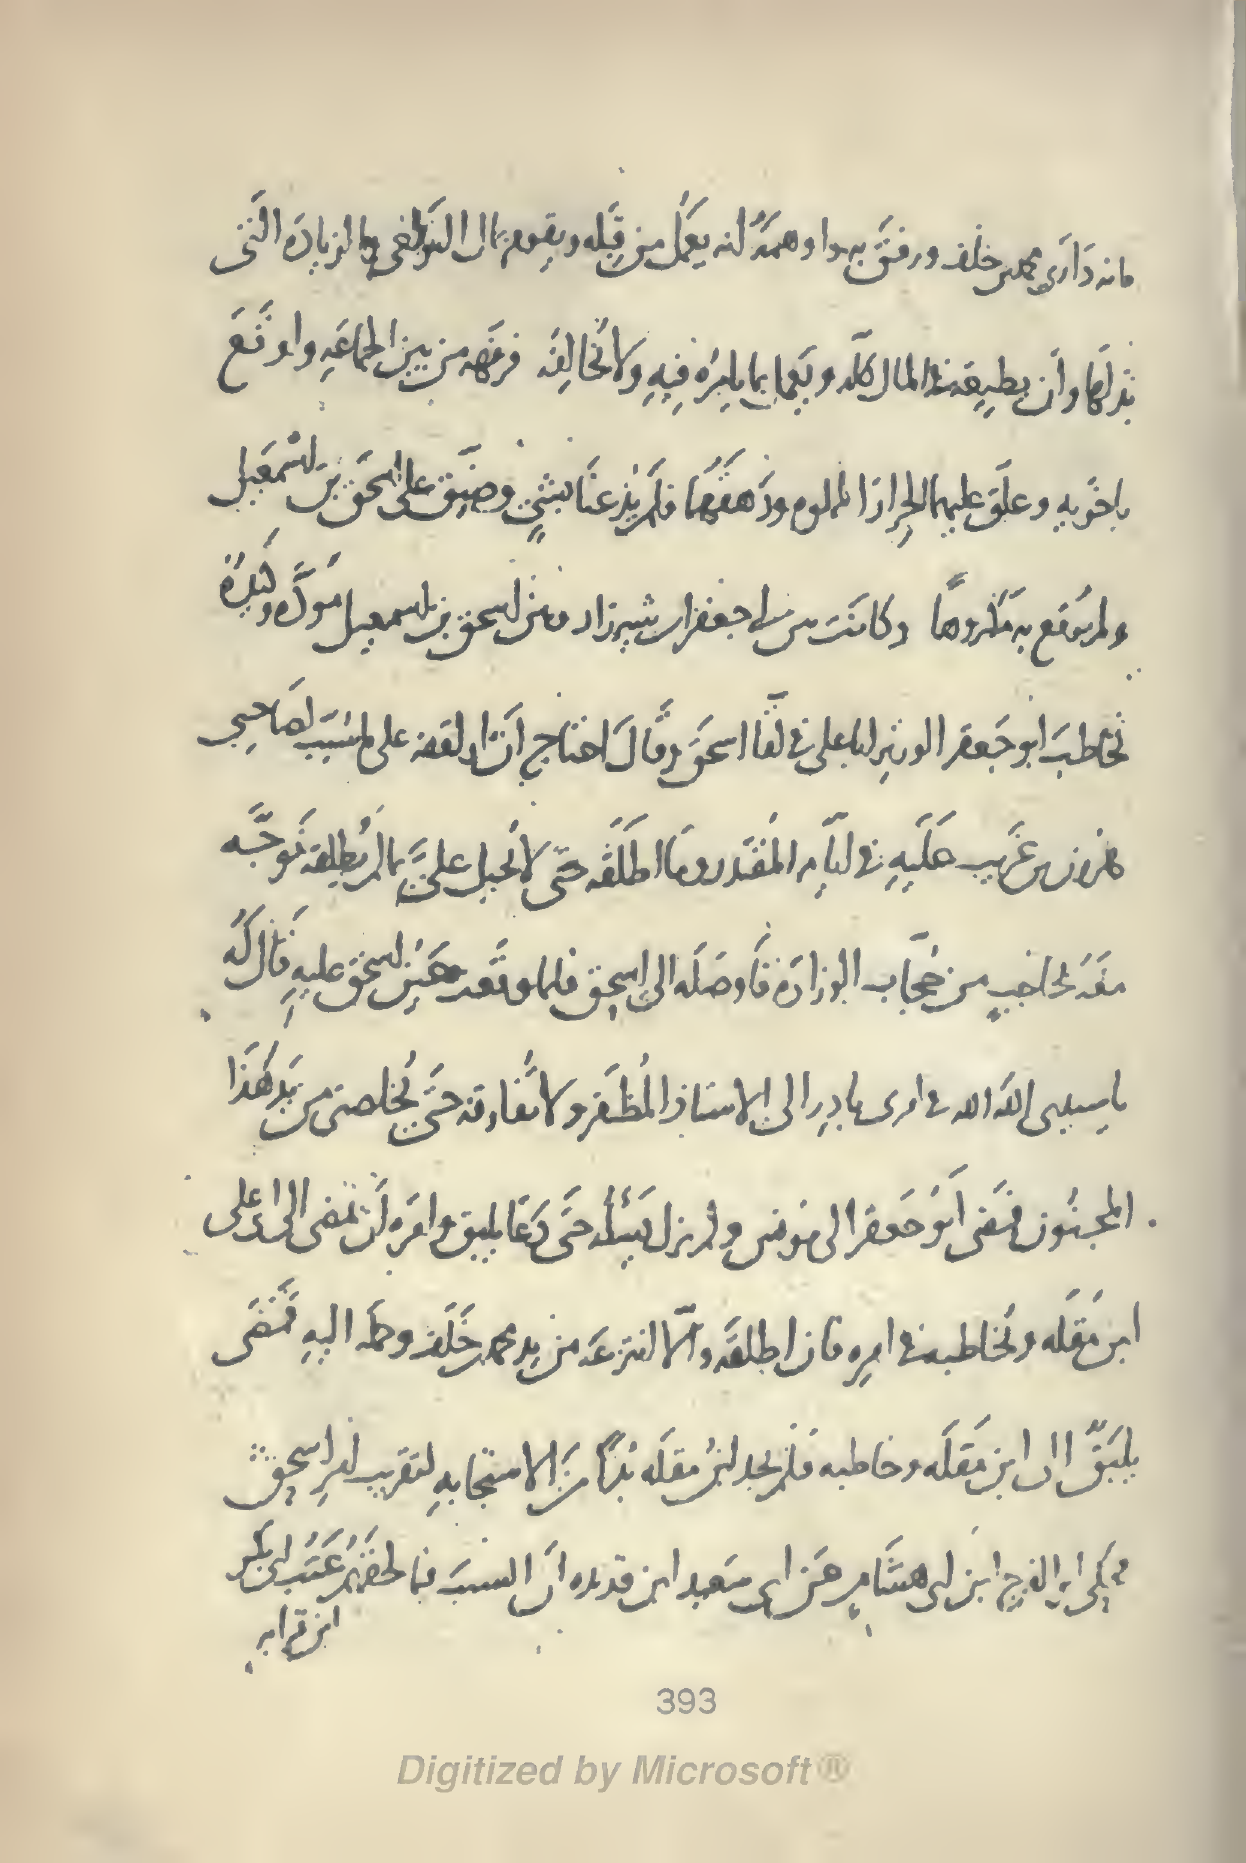 فانه دَارَى محمد بن خلف ورفق به ووهمه انه يعمل من قبله ويقوم بمال النواحى وبالزيادة التى
بذلها وأن يطيعه فى المال كله ويعمل بما يامره فيه ولا يخالفه فرفهه من بين الجماعة واوقع
باخويه وعلق عليهما الجرار المملوءة ودهقهما فلم يذعنا بشىء وضيق على اسحق بن اسمعيل
ولم يوقع به مكروها وكانت بين ابى جعفر ابن شيرزاد وبين اسحق بن اسمعيل مودة وكيدة
فخاطب ابو جعفر الوزير ابا على فى لقا اسحق وقال احتاج ان اواقفه على ما سبب لصاحبى
هرون بن غريب عليه فى ايام المقتدر وما اطلقه حتى لا يحيل على بما لم يطلقه فوجه
معه بحاجب من حجاب الوزارة فاوصله الى اسحق فلما وقعت عين اسحق عليه قال له
يا سيدى الله الله فى امرى بادر الى الاستاذ المظفر ولا تفارقه حتى يخلصنى من يد هذا
المجنون فمضى ابو جعفر الى مونس ولم يزل يسأله حتى دعا بليق وامره ان يمضى الى ابى على
ابن مقله ويخاطبه فى امره فان اطلقه والا انتزعه من يد محمد بن خلف وحمله اليه فمضى
بليق الى ابن مقله وخاطبه فلم يجد ابن مقله بدا من الاستجابه لتقريب امر اسحق
فحكى ابو الفرج ابن ابى هشام عن ابى سعيد ابن قديده ان السبب فى
ابن قرابه
393
Digitized by Microsoft ®